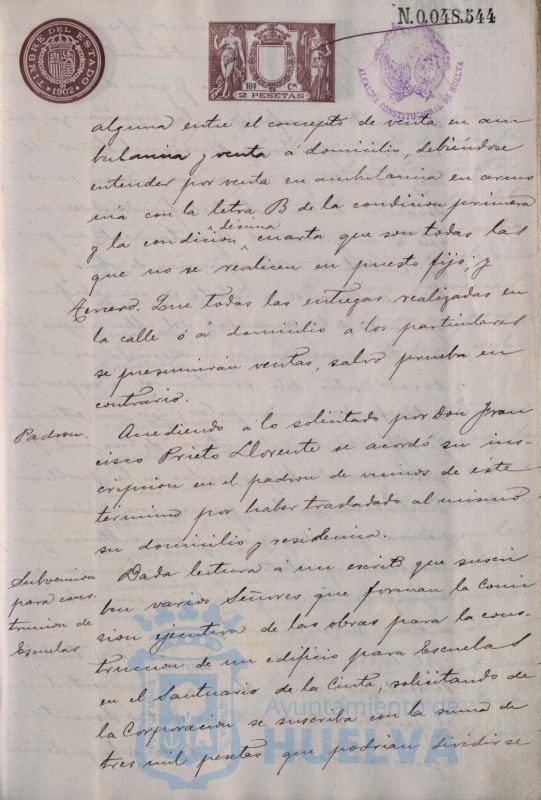 N.0.048.544
TIMBRE DEL ESTADO
1902
AÑO
10ª Cª
2 PESETAS
ALCALDIA CONSTITUCIONAL DE HUELVA
alguna entre el concepto de venta en am-
bulancia y venta á domicilio, debiéndose
entender por venta en ambulancia en armo
nia con la letra B de la condicion primera
y la condicion decima cuarta que son todas las
que no se realicen en puesto fijo; y
tercero. Que todas las entregas realizadas en
la calle ó á domicilio á los particulares
se presumirán ventas, salvo prueba en
contrario.
Padron.
Accediendo á lo solicitado por Don Fran
cisco Prieto Llorente se acordó su ins-
cripcion en el padron de vecinos de éste
término por haber trasladado al mismo
su domicilio y residencia.
Subvencion
para cons
truccion de
Escuelas
Dada lectura á un escrito que suscri
ben varios Señores que forman la Comi
sion ejecutiva de las obras para la cons-
truccion de un edificio para Escuelas
en el Santuario de la Cinta, solicitando de
la Corporacion se suscriba con la suma de
tres mil pesetas que podrian dividirse
Ayuntamiento de
HUELVA